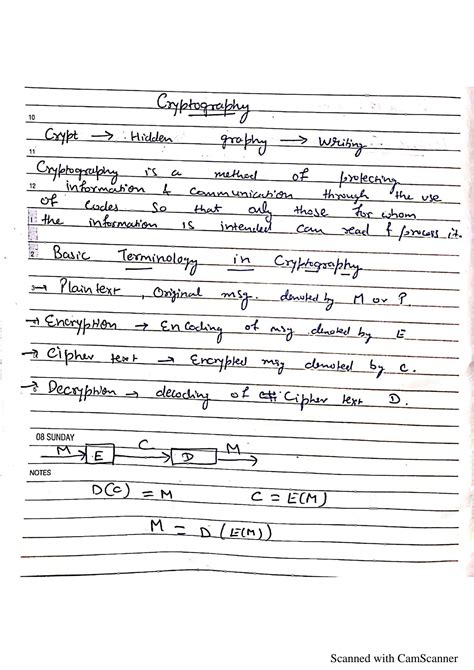 Cryptography
10
Crypt → Hidden graphy → Writing
11
Cryptography is a method of protecting
12 information & communication through the use
of codes so that only those for whom
1 the information is intended can read & process it.
2 Basic Terminology in Cryptography
3 → Plain text, Original msg. denoted by M or P
→ Encryption → Encoding of msg denoted by E
→ Cipher text → Encrypted msg denoted by C.
→ Decryption → decoding of Cipher text D.
08 SUNDAY
M → E C → D M →
NOTES
D(C) = M C = E(M)
M = D (E(M))
Scanned with CamScanner